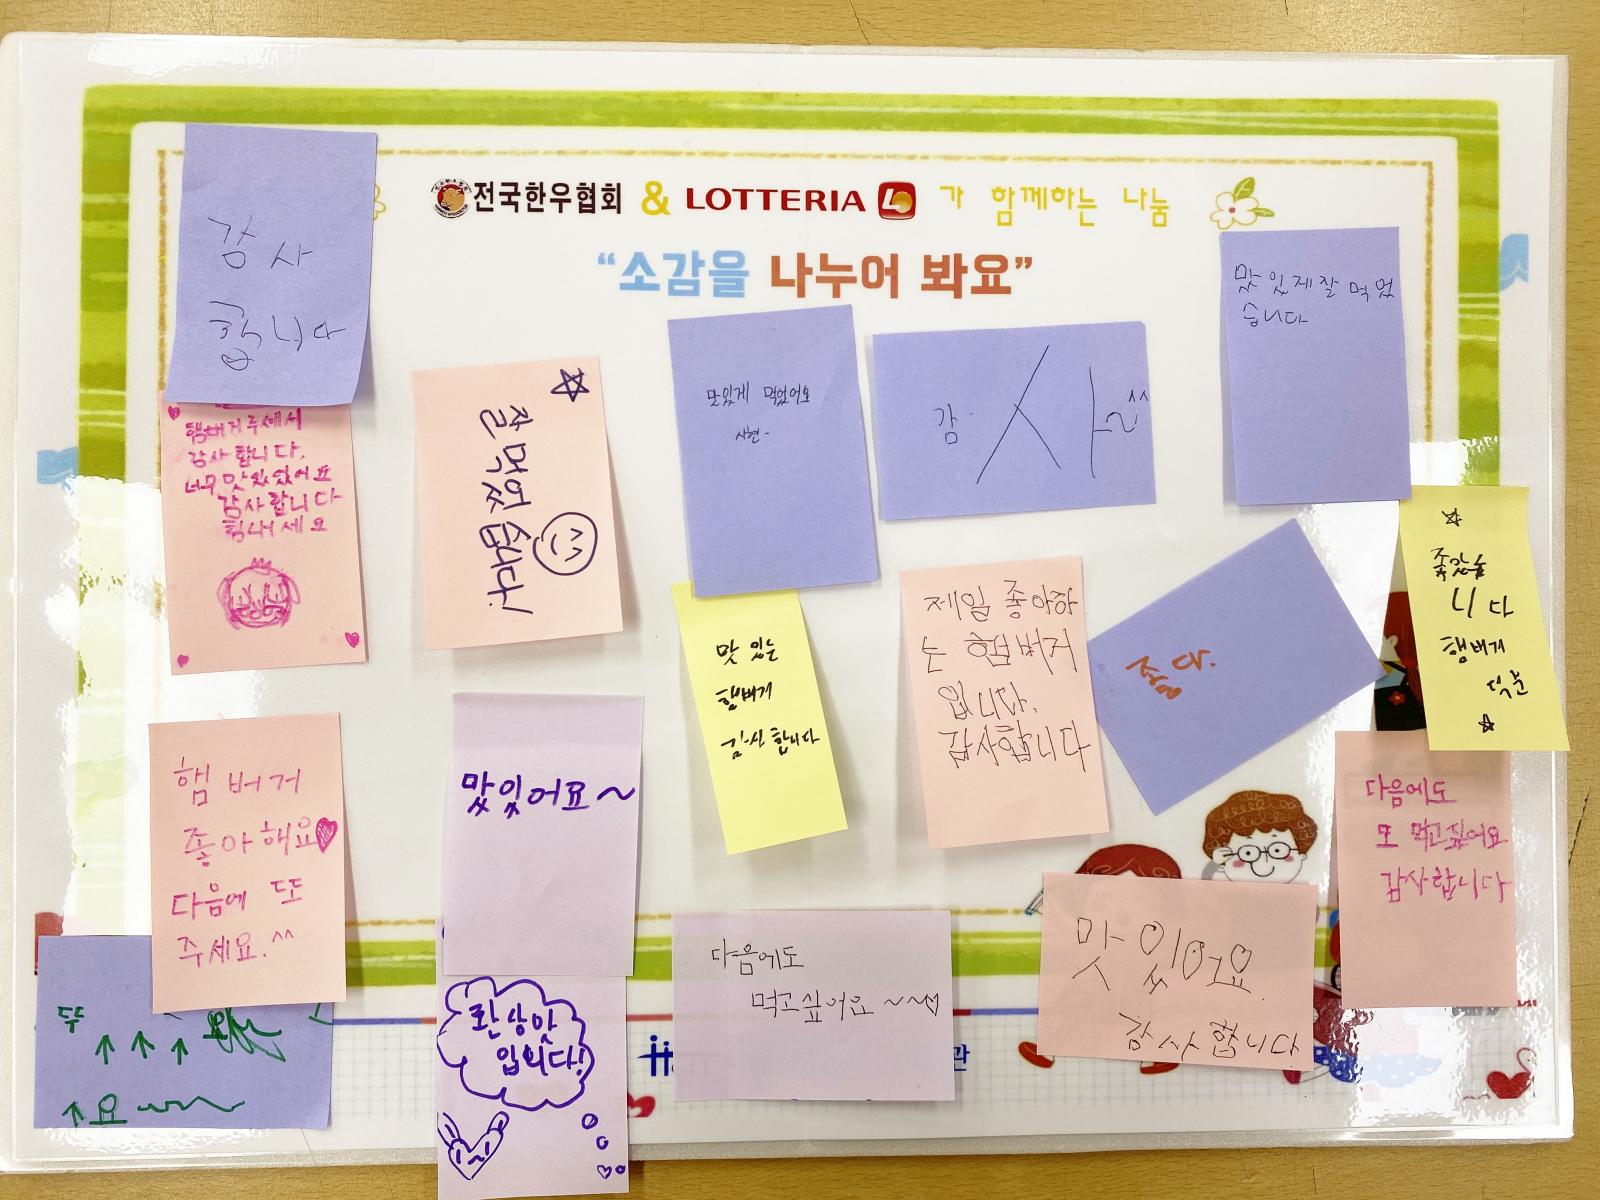 전국한우협회 & LOTTERIA 가 함께하는 나눔
“소감을 나누어 봐요”
감사
합니다
햄버거주셔서
감사합니다.
너무맛있었어요
감사합니다
힘내세요
잘 먹었습니다!
맛있게 먹었어요
시현-
감사~^^
맛있게잘먹었
습니다
맛있는
햄버거
감사합니다
제일 좋아하
는 햄버거
입니다.
감사합니다
좋다.
좋았습
니다
햄버거
덕분
햄버거
좋아해요
다음에 또
주세요.^^
맛있어요~
환상맛
입니다!
다음에도
먹고싶어요~~
맛있어요
감사합니다
다음에도
또 먹고싶어요
감사합니다
↑↑↑
↑요
관